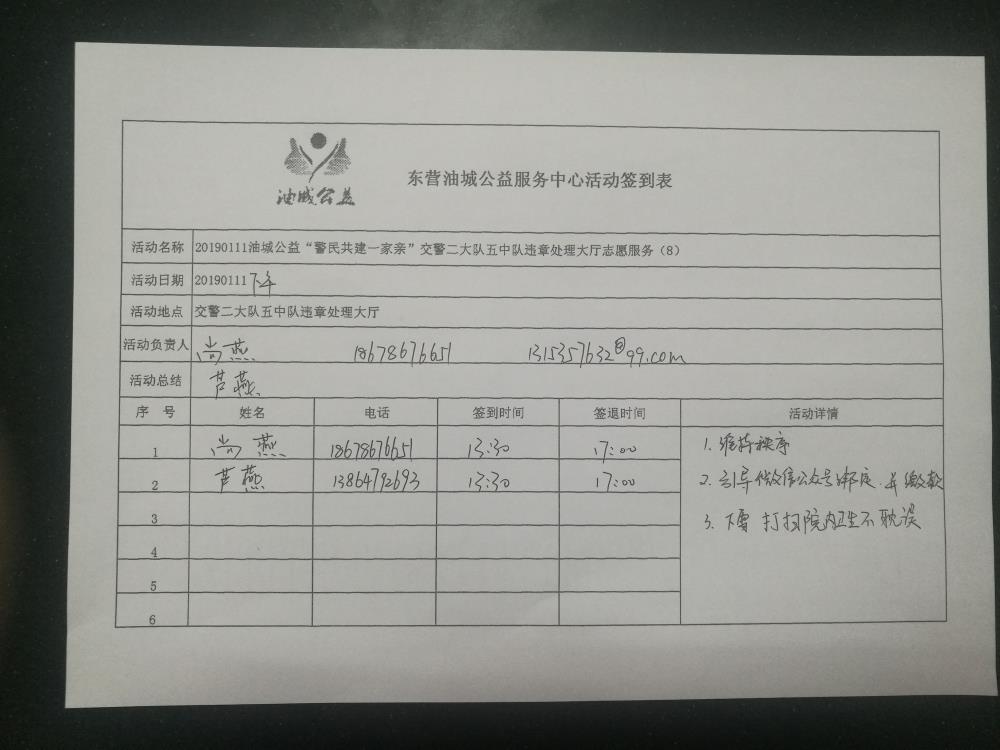 油城公益
东营油城公益服务中心活动签到表
活动名称 20190111油城公益“警民共建一家亲”交警二大队五中队违章处理大厅志愿服务（8）
活动日期 20190111下午
活动地点 交警二大队五中队违章处理大厅
活动负责人 尚燕 18678676651 1315357632@99.com
活动总结 芦燕
序号 姓名 电话 签到时间 签退时间 活动详情
1 尚燕 18678676651 13:30 17:00
2 芦燕 13864792693 13:30 17:00
3
4
5
6
1. 维持秩序
2. 引导做微信公众号绑定.并缴款
3. 下雪 打扫院内卫生不耽误